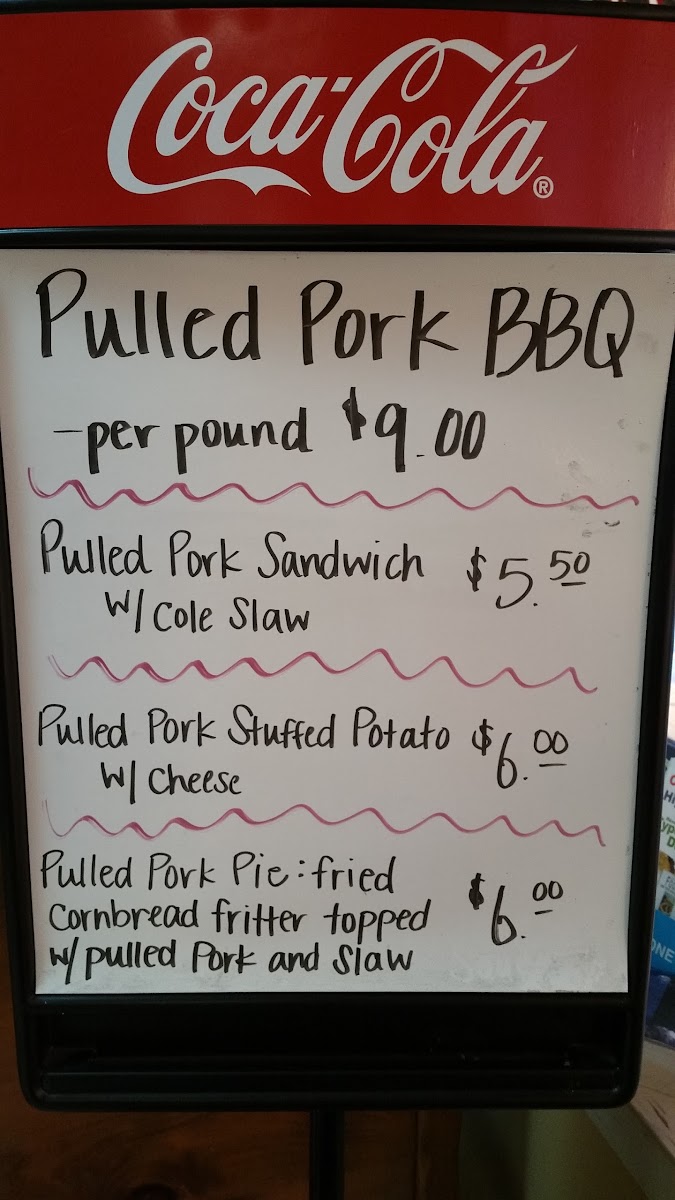 Coca-Cola®
Pulled Pork BBQ
-per pound $9.00
Pulled Pork Sandwich $5.50
w/ Cole Slaw
Pulled Pork Stuffed Potato $6.00
w/ Cheese
Pulled Pork Pie: fried
Cornbread fritter topped $6.00
w/ pulled Pork and Slaw